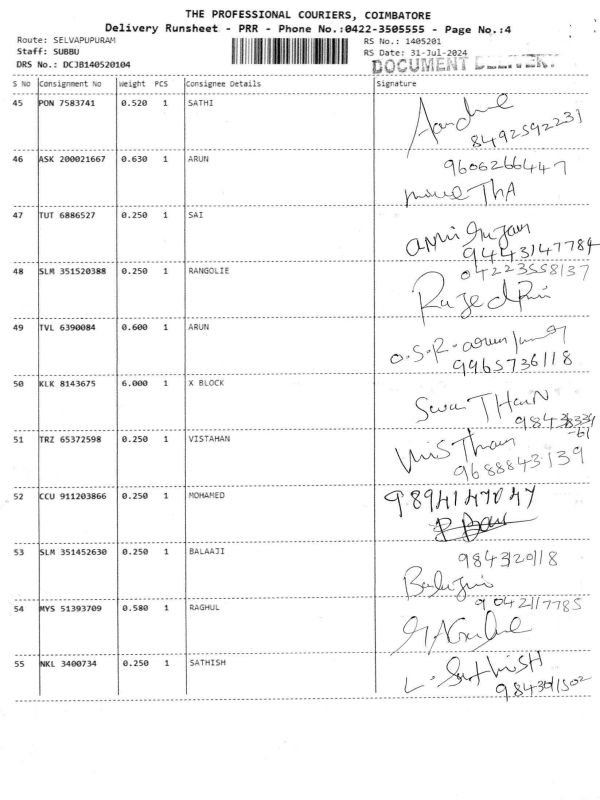 THE PROFESSIONAL COURIERS, COIMBATORE
Delivery Runsheet - PRR - Phone No.:0422-3505555 - Page No.:4
Route: SELVAPUPURAM RS No.: 1405201
Staff: SUBBU RS Date: 31-Jul-2024
DRS No.: DCJB140520104 DOCUMENT
S No Consignment No Weight PCS Consignee Details Signature
45 PON 7583741 0.520 1 SATHI
8492592231
46 ASK 200021667 0.630 1 ARUN 9606266447
47 TUT 6886527 0.250 1 SAI
9443147784
48 SLM 351520388 0.250 1 RANGOLIE 04223558137
49 TVL 6390084 0.600 1 ARUN
O.S.R-
9965736118
50 KLK 8143675 6.000 1 X BLOCK
51 TRZ 65372598 0.250 1 VISTAHAN
9688843139
52 CCU 911203866 0.250 1 MOHAMED 9894147047
53 SLM 351452630 0.250 1 BALAAJI 984320118
54 MYS 51393709 0.580 1 RAGHUL 9042117785
55 NKL 3400734 0.250 1 SATHISH L. Sathish